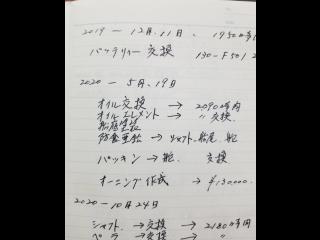 2019 — 12月.11日、 1950時
バッテリィー 交換 130-F51
2020 — 5月、19日
オイル交換 → 2090時間
オイルエレメント → 〃 交換.
船底塗装
防食亜鉛 → シャフト、船尾、舵
パッキン → 舵、 交換
オーニング作成 → ¥130000.
2020 — 10月24日
シャフト. → 交換 → 2180時間
ペラ → 交換 → 〃